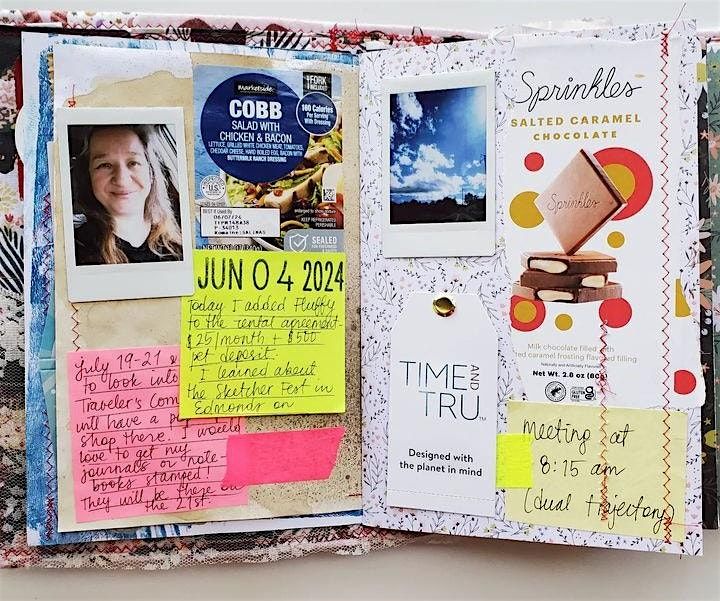 marketside
FORK
INCLUDED
COBB
SALAD WITH
CHICKEN & BACON
LETTUCE, GRILLED WHITE CHICKEN MEAT, TOMATOES,
CHEDDAR CHEESE, HARD BOILED EGG, BACON WITH
BUTTERMILK RANCH DRESSING
160 Calories
Per Serving
With Dressing
BEST if Used By
06/07/24
KEEP REFRIGERATED
PERISHABLE
SEALED
JUN 04 2024
Today I added Fluffy
to the rental agreement.
$25/month + $500
pet deposit.
I learned about
the Sketcher Fest in
Edmonds on
July 19-21 &
to look into
Traveler's Com
will have a p
shop there. I would
love to get my
journals or note-
books stamped!
They will be there on
the 21st.
Sprinkles
SALTED CARAMEL
CHOCOLATE
Sprinkles
Milk chocolate filled with
ted caramel frosting flavored filling
Naturally and Artificially Flavored
Net Wt. 2.8 oz (80g)
TIME AND TRU™
Designed with
the planet in mind
Meeting at
8:15 am
(dual trajectory)